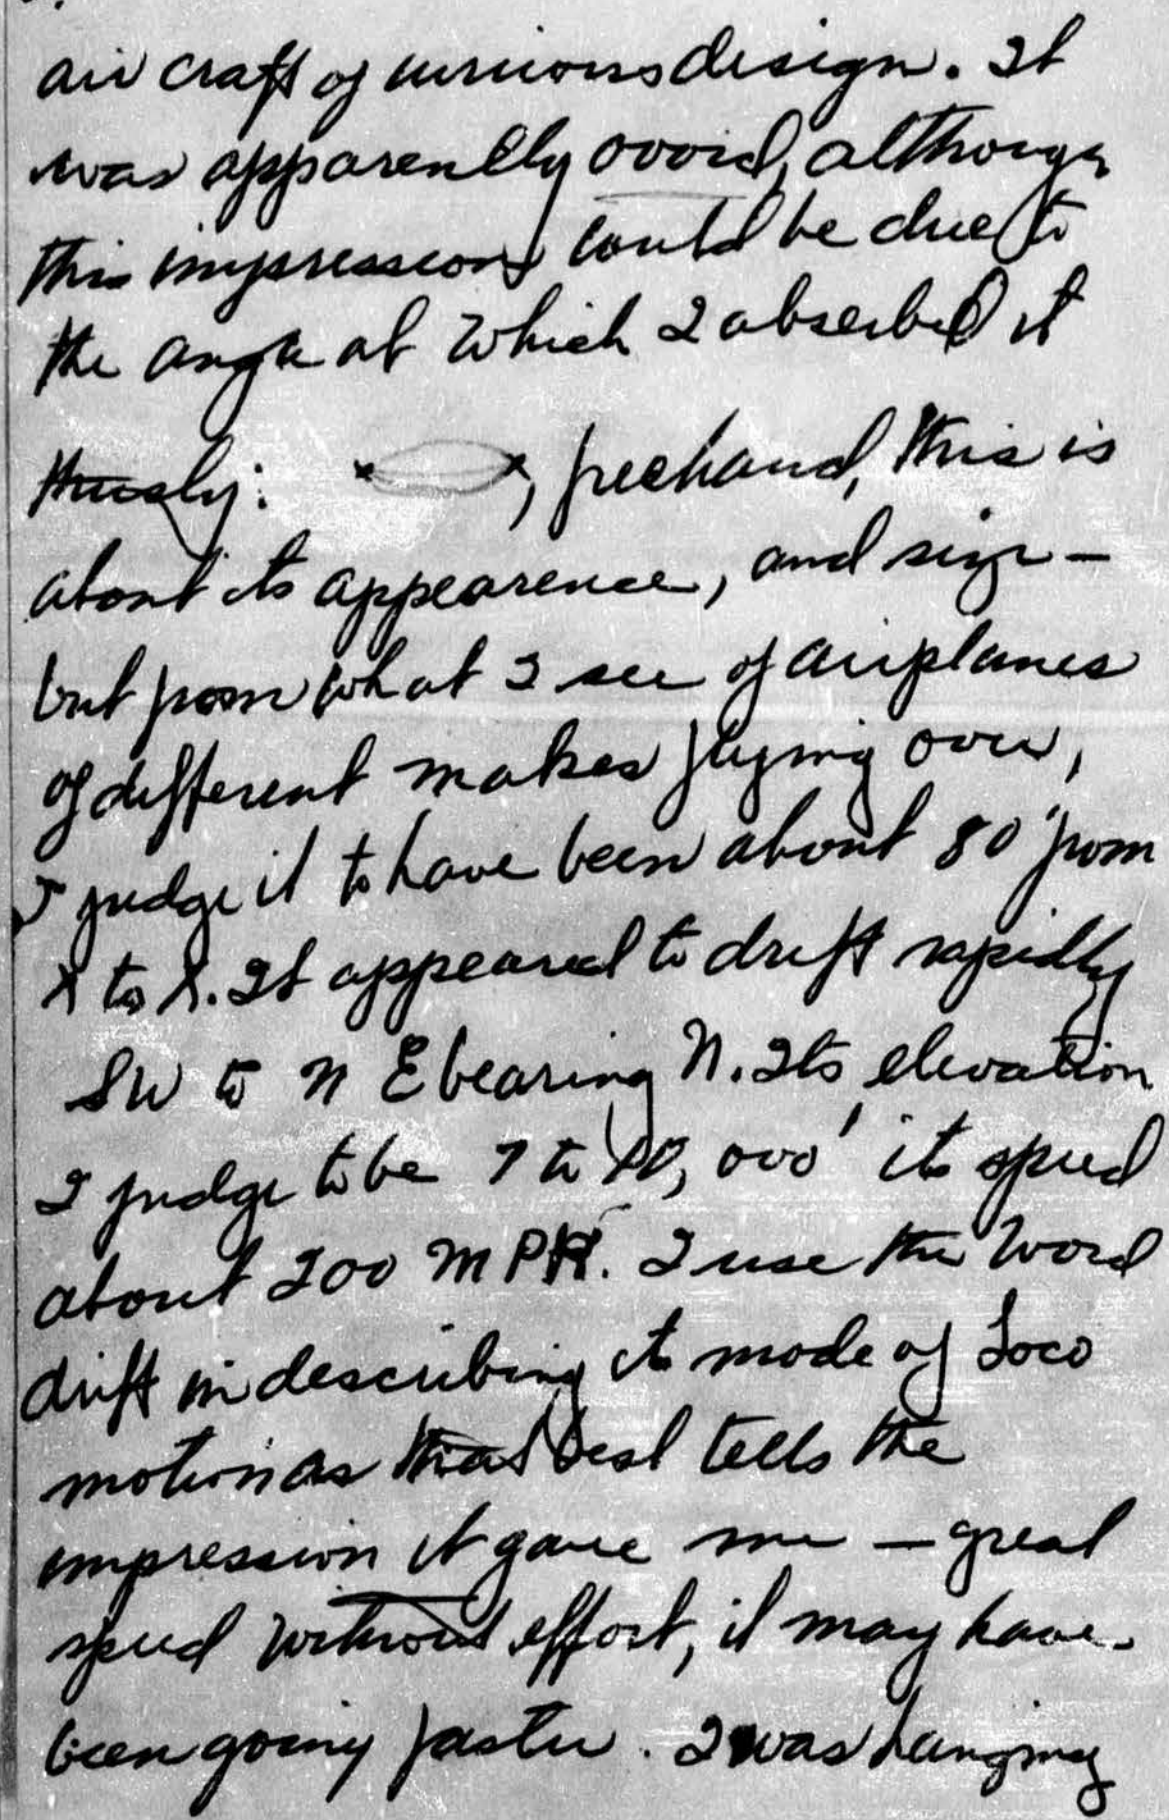 air craft of curious design. It
was apparently ovoid, although
this impression could be due to
the angle at which I observed it
thusly: x x, freehand, this is
about its appearence, and size –
but from what I see of airplanes
of different makes flying over,
I judge it to have been about 80' from
X to X. It appeared to drift rapidly
SW to N E bearing N. Its elevation
I judge to be 7 to 10,000' its speed
about 200 MPH. I use the word
drift in describing its mode of loco
motion as that best tells the
impression it gave me – great
speed without effort, it may have
been going faster. I was hanging